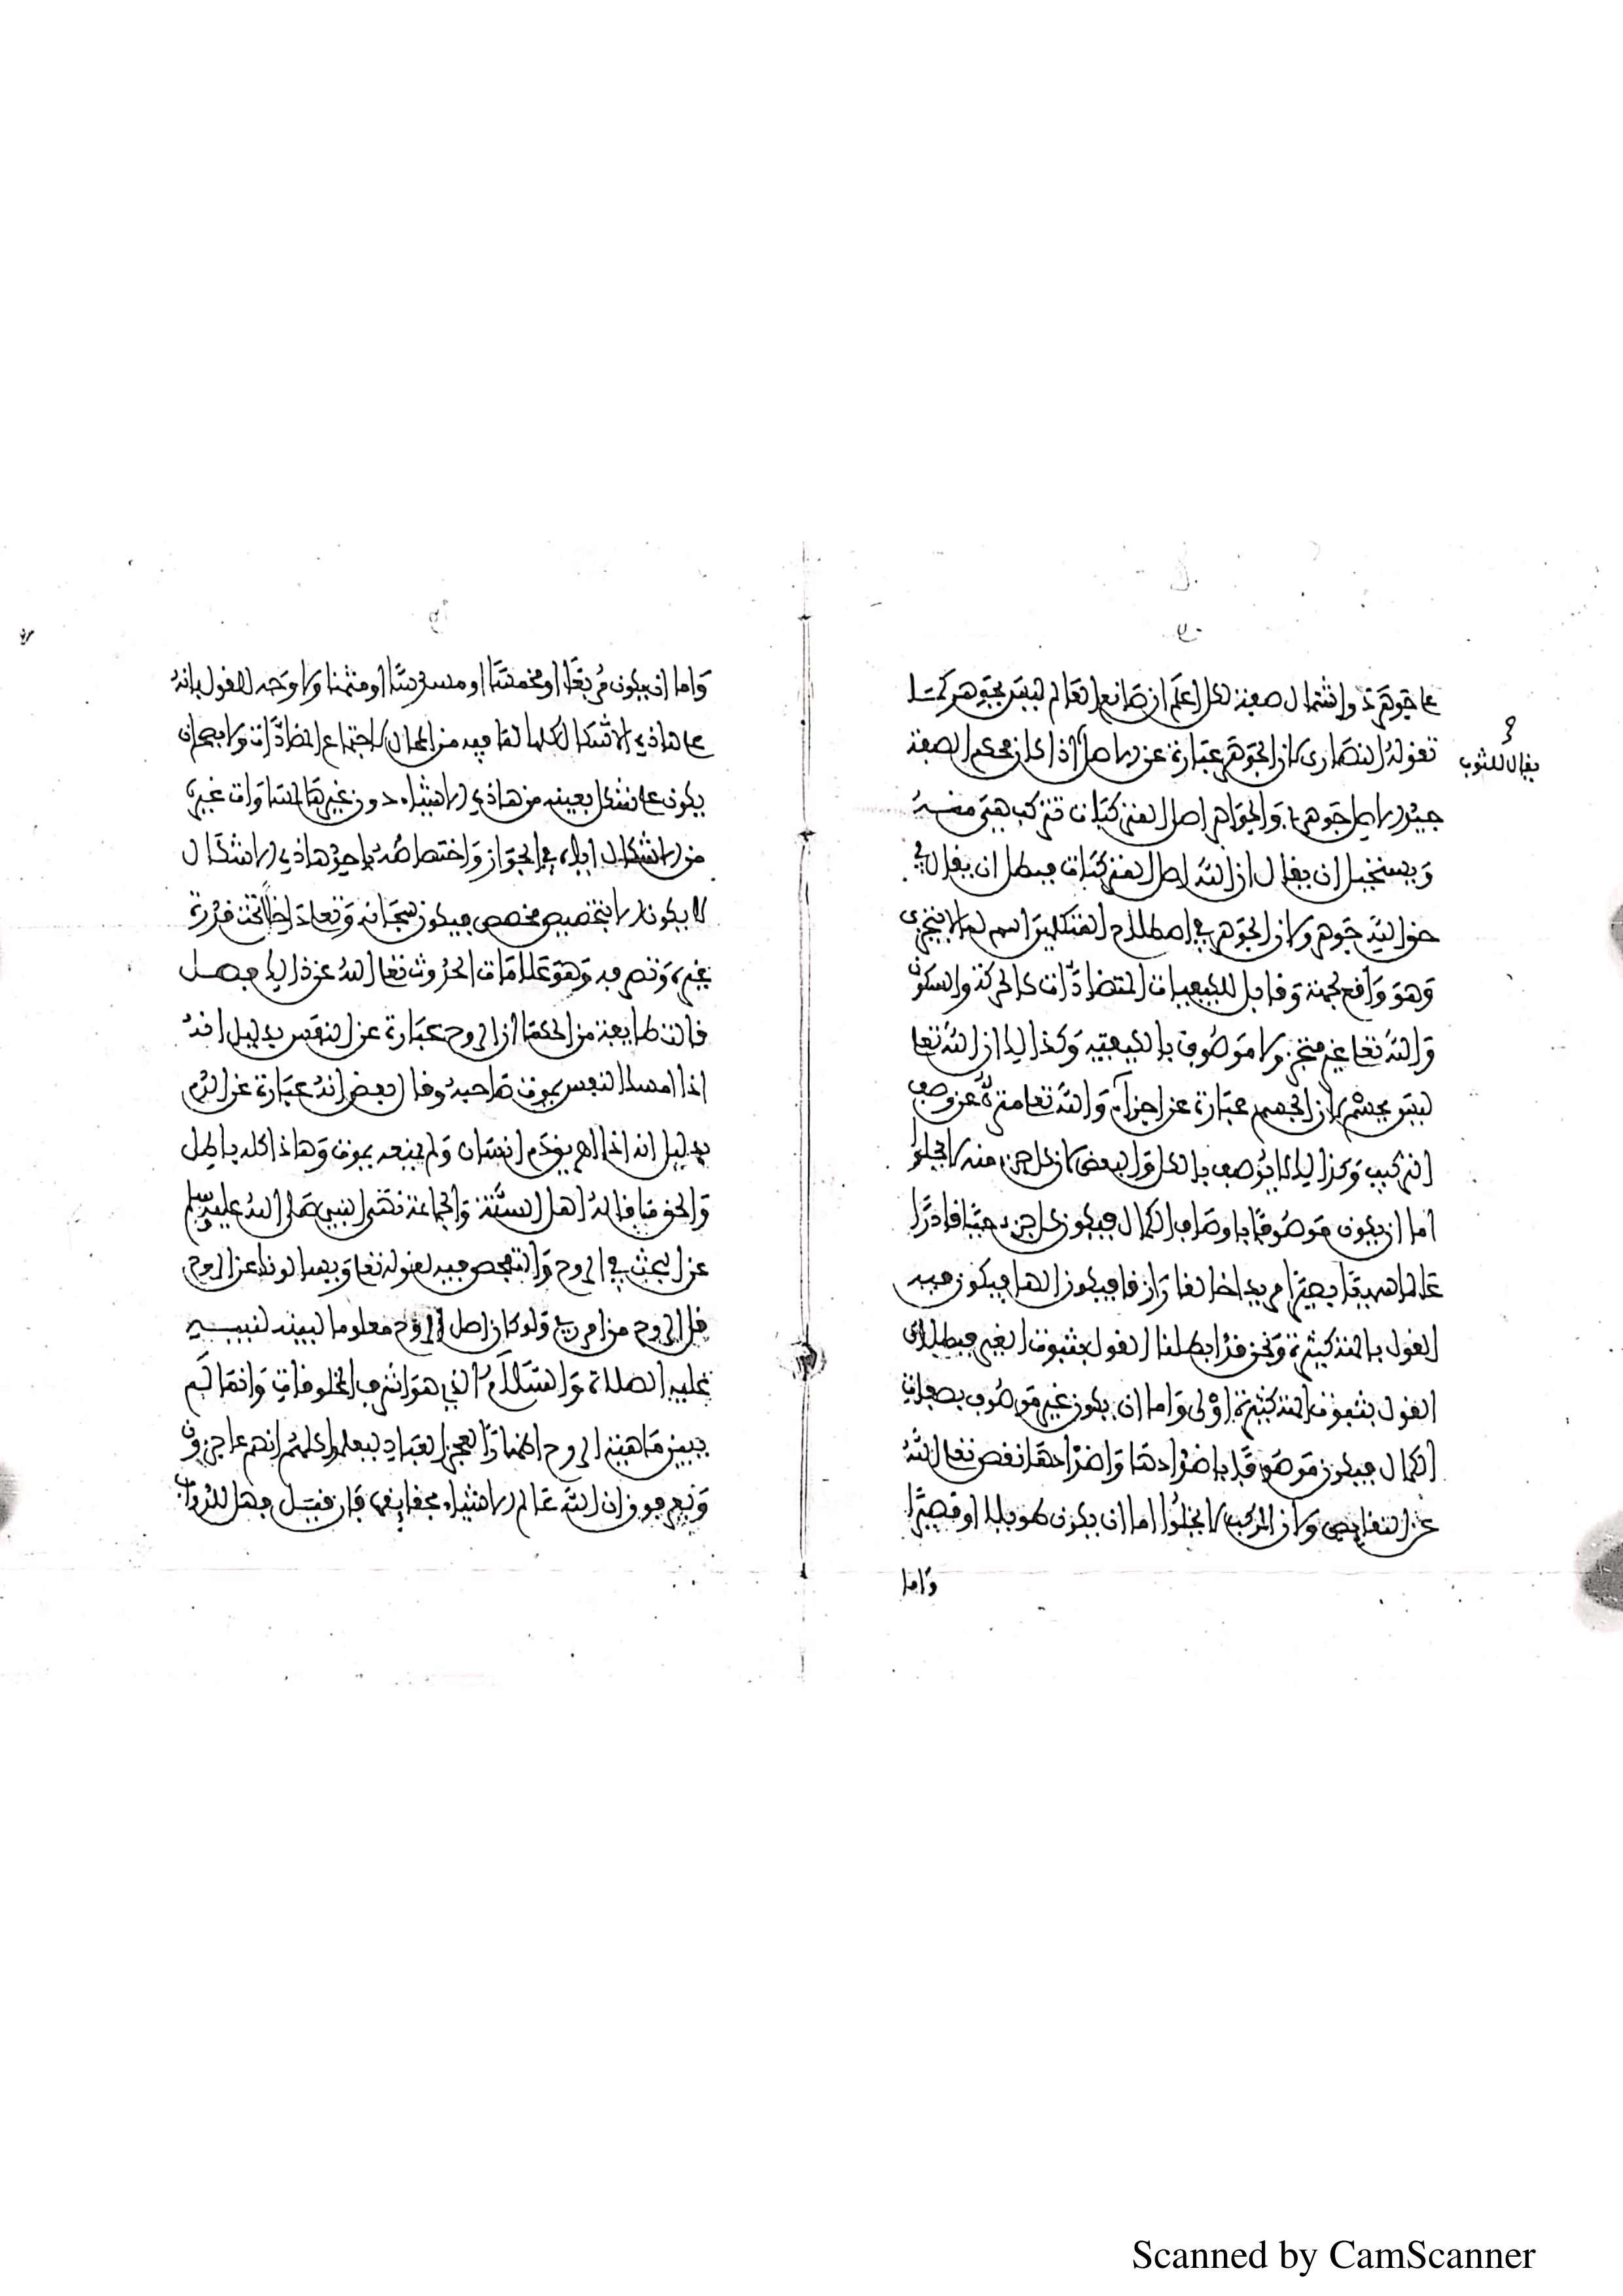 على جوهرته واشتمال صفته فصل اعلم ان صانع العالم ليس بجوهر كما
تقوله النصارى لان الجوهر عبارة عن الاصل اذا كان محكم الصفة
يقال للثوب
جيد الاصل جوهري والجواهر اصل المتركبات تتركب هي منه
ويستحيل ان يقال ان الله اصل المتركبات فبطل ان يقال في
حق الله جوهر ولان الجوهر في اصطلاح المتكلمين اسم لما لا يتجزى
وهو واقع لجهة وقابل للكيفيات المتضادات كالحركة والسكون
والله تعا غير متجز ولا موصوف بالكيفية وكذالك ان الله تعا
ليس بجسم لان الجسم عبارة عن اجزاء والله تعا منزه عن وصف
التركيب وكذالك لا يوصف بالكل والبعض لان كل جزء منه لا يخلوا
اما ان يكون موصوفا باوصاف الكمال فيكون كل جزء حيا قادرا
عالما سميعا بصيرا مريدا خالقا رازقا فيكون الها فيكون فيه
القول بالهة كثيرة ونحن قد ابطلنا القول بثبوت الغير فبطلان
القول بثبوت الهة كثيرة اولى واما ان يكون غير موصوف بصفات
الكمال فيكون موصوفا باضدادها واضدادها نقص تعالى الله
عن النقايص ولان المركب لا يخلوا اما ان يكون طويلا او قصيرا
واما
واما ان يكون مربعا او مخمسا او مسدسا او مثمنا ولا وجه للقول بانه
على هاذه الاشكال كلها لما فيه من المحال لاجتماع المضادات ولا يصح ان
يكون على شكل بعينه من هاذه الاشياء دون غيرها لمساوات غيره
من الاشكال اياه في الجواز واختصاصه باحدى هاذه الاشكال
لا يكون الا بتخصيص مخصص فيكون سبحانه وتعا داخلا تحت قدرة
غيره وتصرفه وهو علامات الحدوث تعا الله عن ذالك فصل
قالت طايفة من الحكما ان الروح عبارة عن النفس بدليل انه
اذا امسك النفس يموت صاحبه وقال بعض انه عبارة عن الدم
بدليل انه اذا اهريق دم انسان ولم يمنعه يموت وهاذا كله باطل
والحق ما قاله اهل السنة والجماعة نهى النبي صلى الله عليه وسلم
عن البحث في الروح والتفحص فيه لقوله تعا ويسالونك عن الروح
قل الروح من امر ربي ولو كان اصل الروح معلوما لبينه لنبيه
عليه الصلاة والسلام الذي هو اشرف المخلوقات وانما لم
يبين ماهية الروح اظهارا لعجز العباد ليعلموا كلهم انهم عاجزون
ويعرفون ان الله عالم الاشياء بحقايقها فان قيل فهل للروح